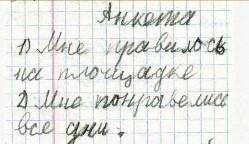 Анкета
1) Мне нравилось
на площадке
2) Мне понравелись
все дни.